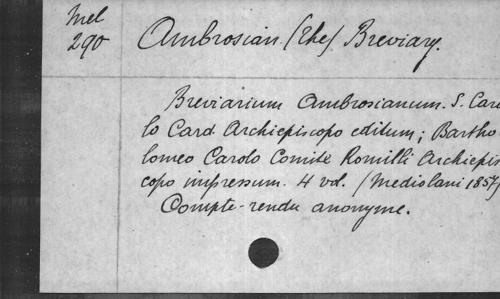 Mel
290
Ambrosian (The) Breviary.
Breviarium Ambrosianum. S. Caro
lo Card Archiepiscopo editum; Bartho
lomeo Carolo Comite Romilli Archiepis
copo impressum. 4 vol. (Mediolani 1857)
Compte-rendu anonyme.